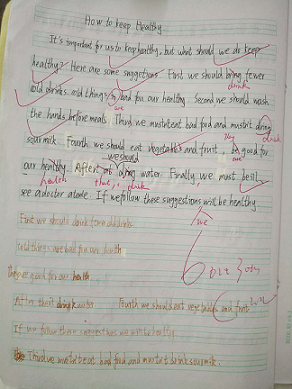 How to keep Healthy
It's important for us to keep healthy, but what should we do keep
healthy? Here are some suggestions. First we should bring fewer
drink
old drinks, old things is bad for our healthy. Second we should wash
are
the hands before meals. Third we mustn't eat bad food and mustn't dring
drink
sour milk. Fourth we should eat vegetables and fruit. be good for
they
are
our healthy. After at dring water. Finally, we must be ill
we should
health that, drink
see a doctor at once. If we follow those suggestions we will be healthy
we
First we should drink fewer old drinks
Cold things are bad for our health
They are good for our health
After that drink water Fourth we should eat vegetables and fruit
If we follow these suggestions we will be healthy
Third we mustn't eat bad food and mustn't drink sour milk.